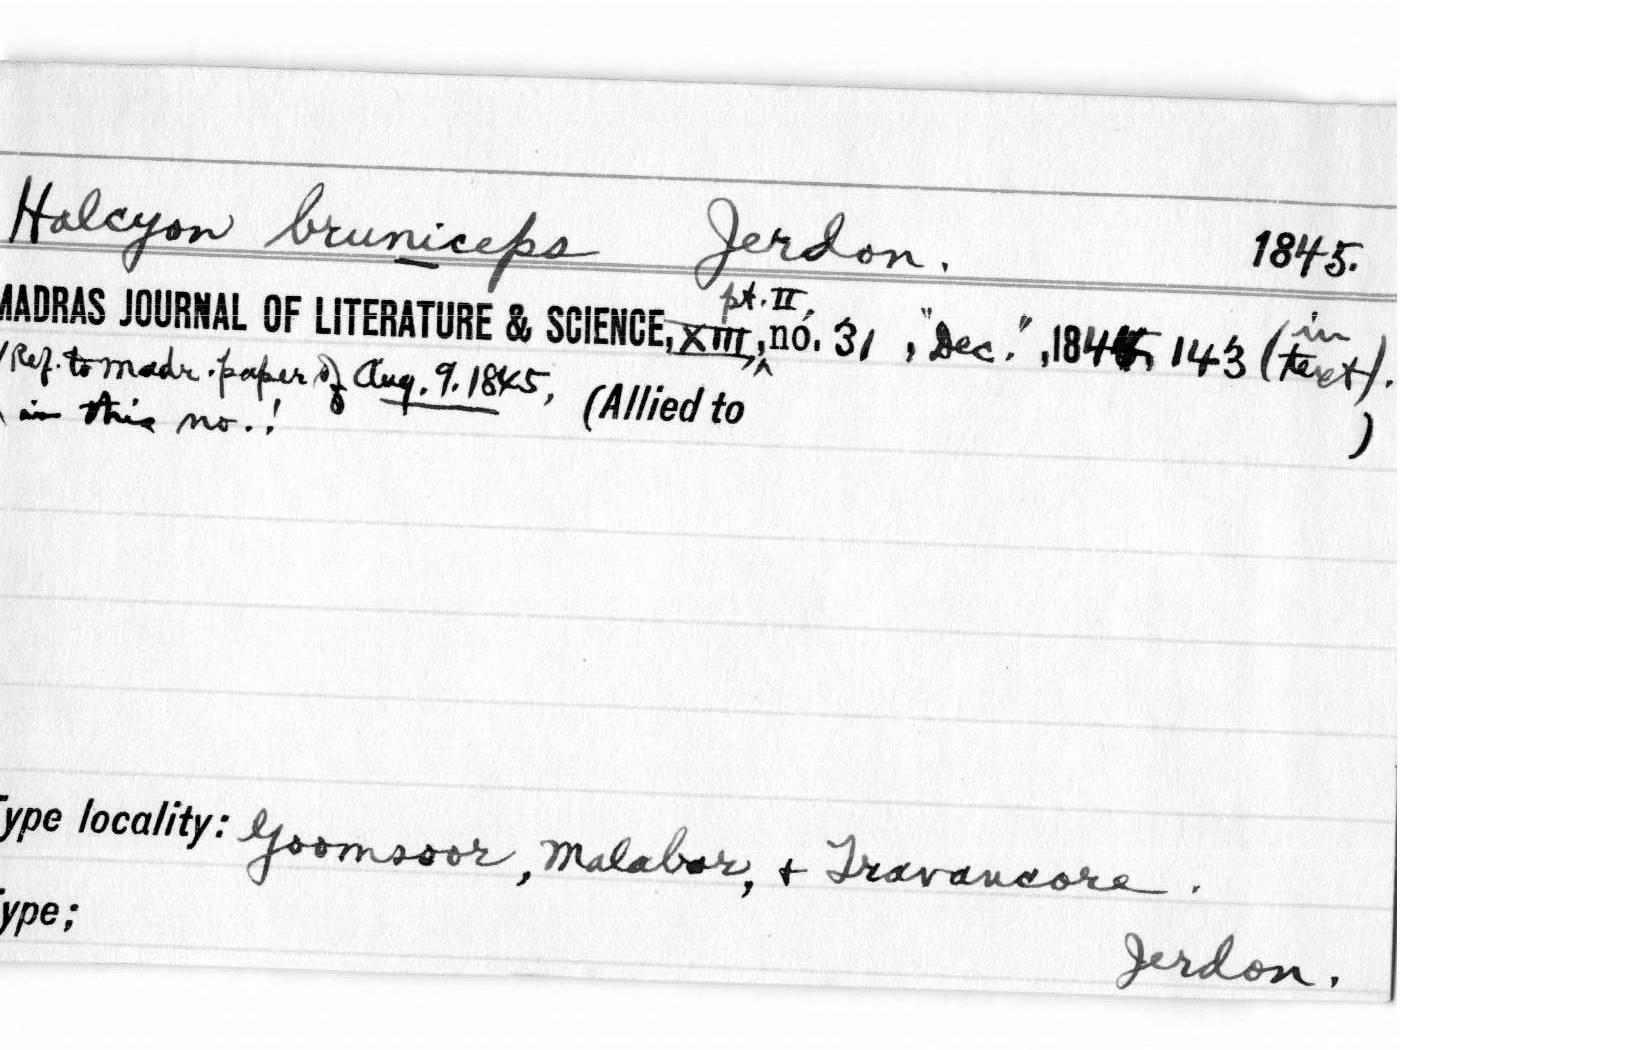 Halcyon bruniceps Jerdon. 1845.
pt. II,
MADRAS JOURNAL OF LITERATURE & SCIENCE, XIII, no. 31, "Dec.", 184 143 (in text).
(Ref. to madr. paper of Aug. 9. 1845, (Allied to )
in this no.!
Type locality: Goomsoor, Malabar, + Travancore.
Type;
Jerdon.